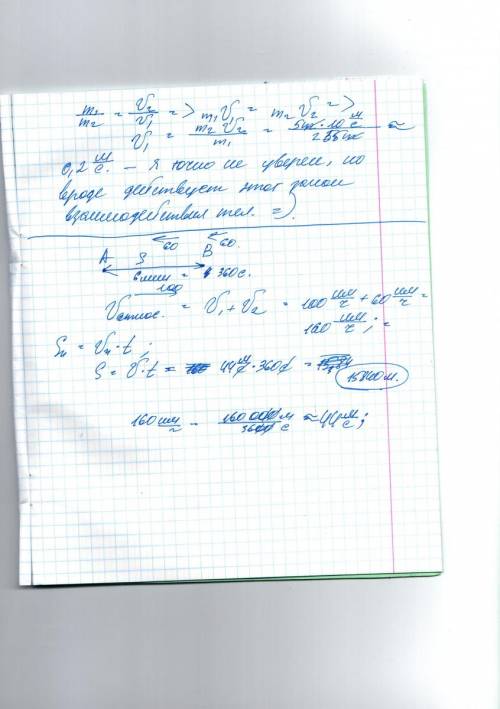 m₁/m₂ = V₂/V₁ => m₁V₁ = m₂V₂ =>
V₁ = m₂V₂/m₁ = ≈
0,2 м/с. – я точно не уверен, но
вроде действует этот закон
взаимодействия тел. =).
60 60.
A S B
6 мин = 360 с.
100
Vотнос. = V₁ + V₂ = 100 км/ч + 60 км/ч =
160 км/ч ; =
Sн = Vн · t ;
S = V · t = 44 м/с · 360 с = 15840 м.
160 км/ч = 160 000 м / 3600 с ≈ 44 м/с ;